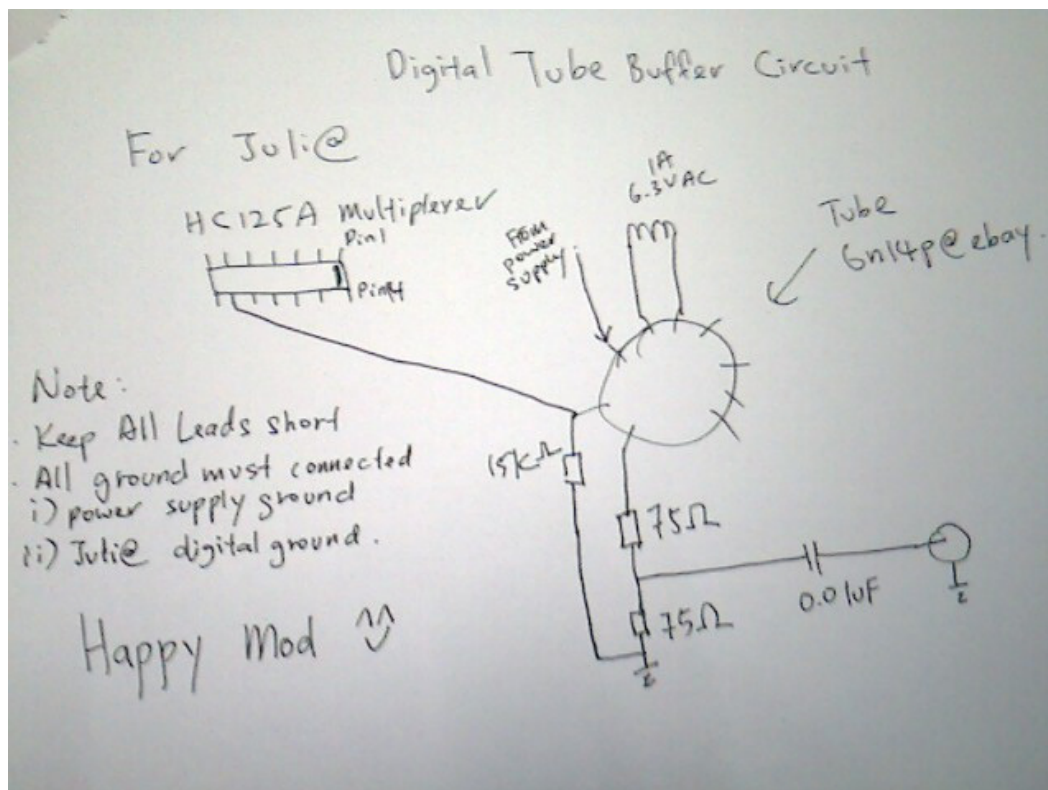 Digital Tube Buffer Circuit
For Juli@
HC125A Multiplexer
Pin1
Pin14
From
power
supply
1A
6.3VAC
Tube
6n14p@ebay.
Note:
. Keep All Leads short
. All ground must connected
i) power supply ground
ii) Juli@ digital ground.
15KΩ
75Ω
75Ω
0.01uF
Happy Mod ^^